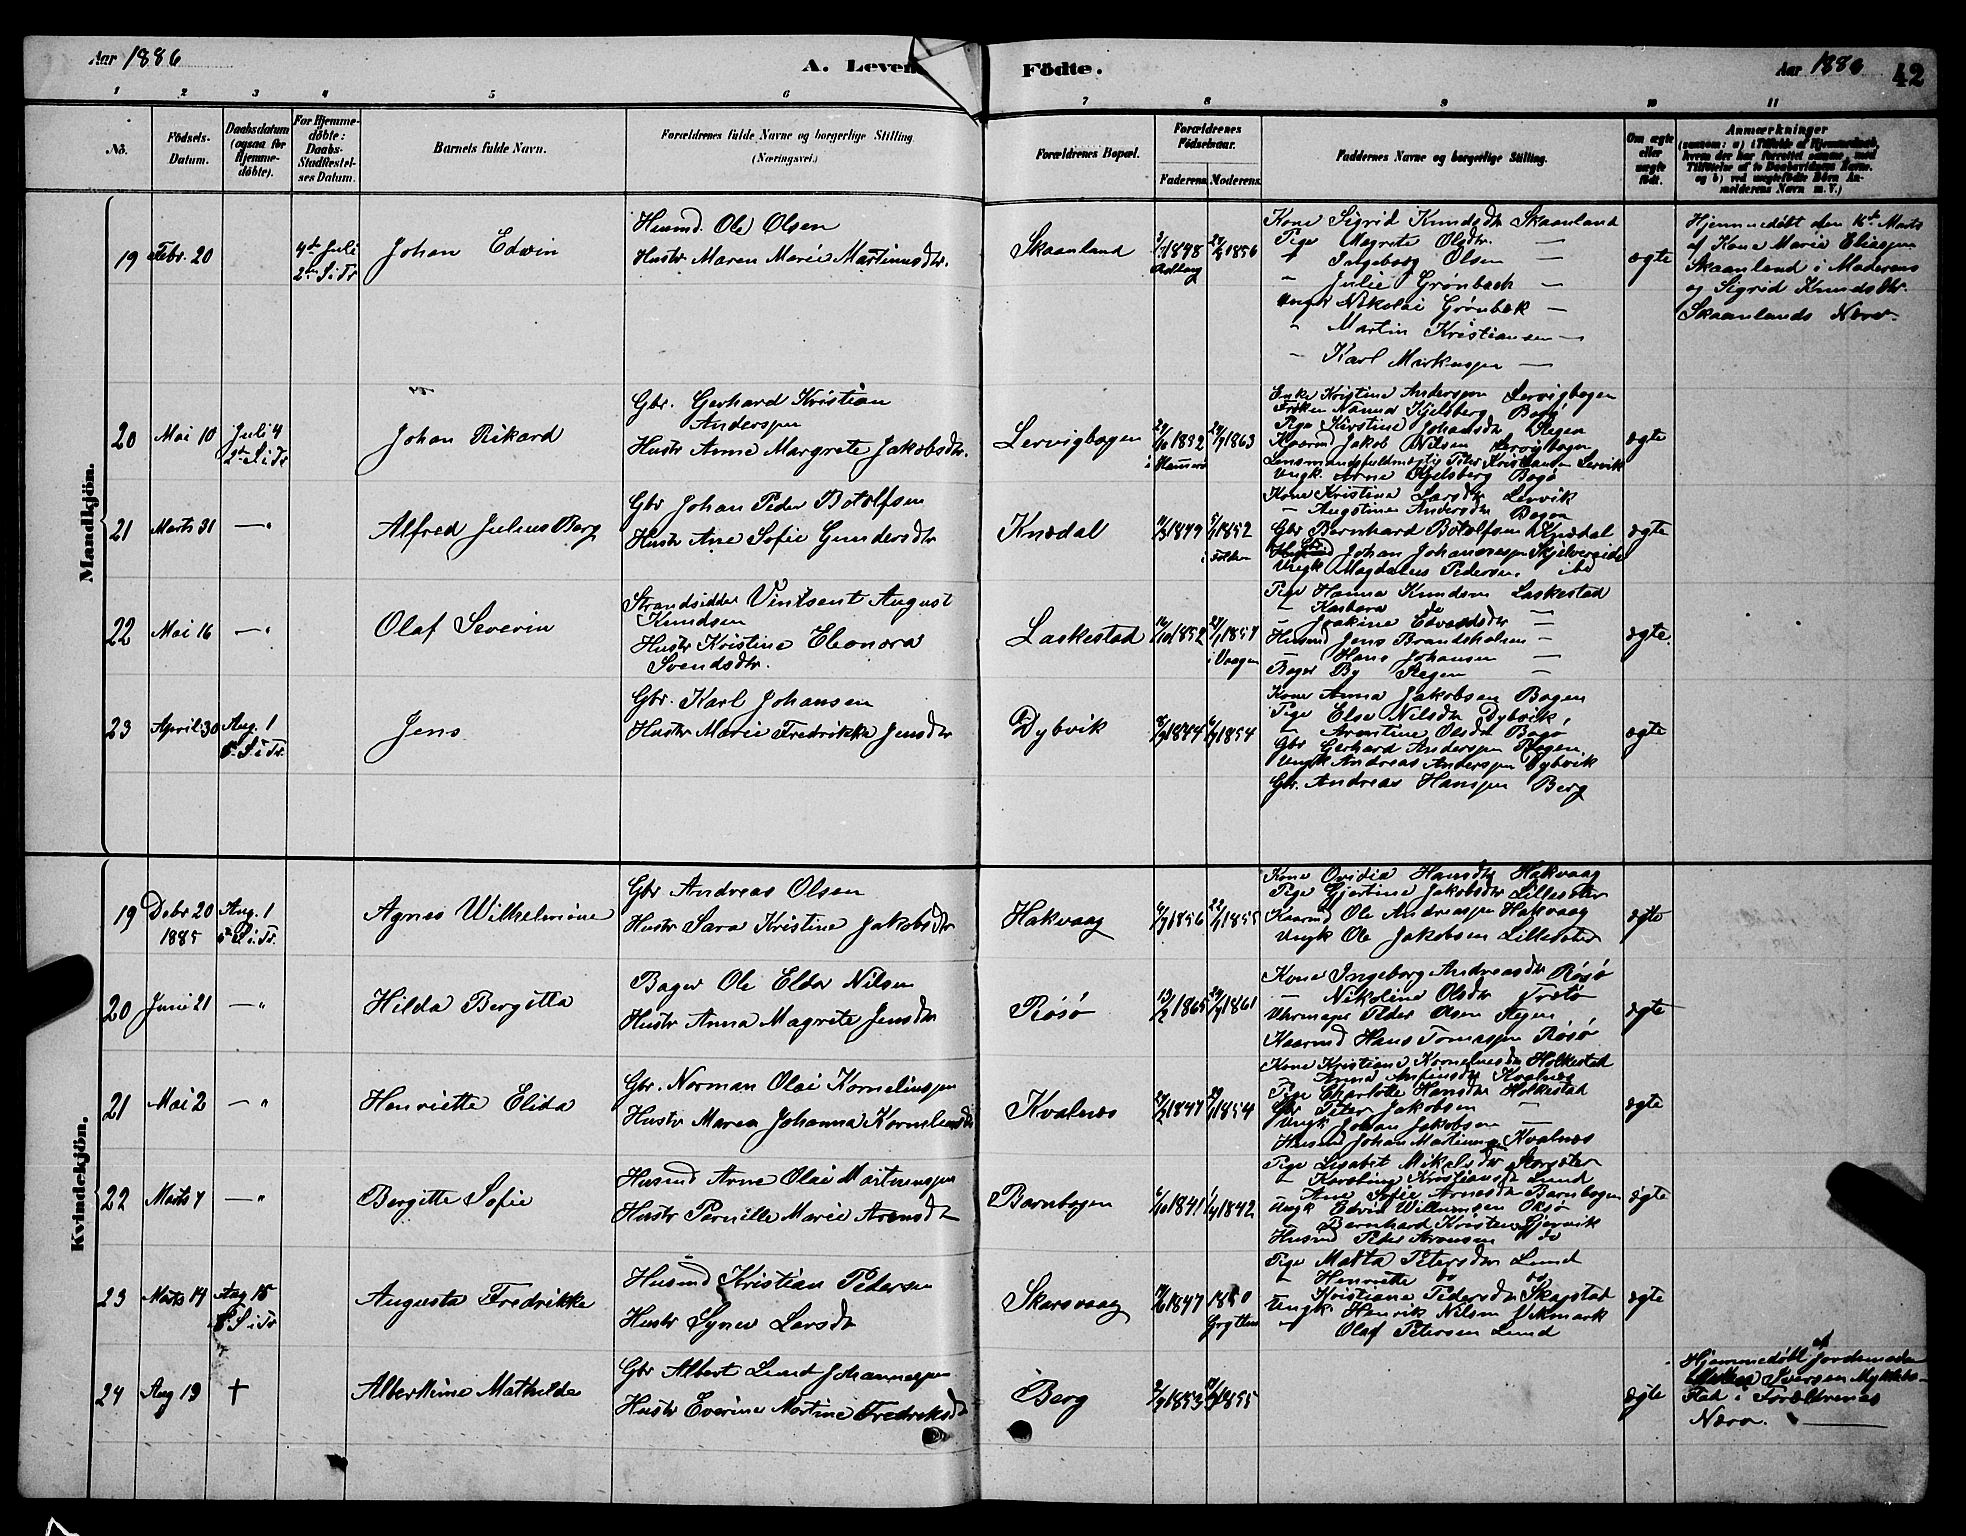 Aar 1886
A. Levende
Födte.
Aar 1886
42
1 2 3 4 5 6 7 8 9 10 11
No.
Födsels-
Datum.
Daabsdatum
(ogsaa for
Hjemme-
döbte).
For Hjemme-
döbte:
Daabs-
Stadfæstel-
ses Datum.
Barnets fulde Navn.
Forældrenes fulde Navne og borgerlige Stilling
(Næringsvei.)
Forældrenes Bopæl.
Forældrenes
Födselsaar.
Faderens. Moderens.
Faddernes Navne og borgerlige Stilling.
Om ægte
eller
uægte
födt.
Anmærkninger
Mandkjön.
19 Febr. 20
4de Juli
2den S. i Tr.
Johan Edvin
Husmd. Ole Olsen
Hustr Maren Marie Martinusdtr.
Skaanland
1848
1856
Kone Sigrid Knudsdtr Skaanland
Pige Magrete Olsdtr. —
" Ingeborg Olsen —
" Julie Grønbæch —
Ungk Nikolai Grønbæk —
" Martin Kristiansen —
" Karl Markussen —
ægte
Hjemmedøbt den 16de Marts
af Kone Marie Eliassen
Skaanland i Moderens
og Sigrid Knudsdtr.
Skaanlands Nærv.
20 Mai 10
Juli 4
2den S. i Tr
Johan Rikard
Gbr. Gerhard Kristian
Anderssen
Hustr Anne Margrete Jakobsdtr.
Lervigbogen
1852
1863
Enke Kristine Anderssen Lervigbogen
Frøken Nanna Kjelsberg Bogø
Pige Kirstine Johansdtr Regen
Kaarmd Jakob Nilsen Lervigbogen
Lensmandsfuldmægtig Peter Kristiansen Lervik
Ungk. Arne Kjelsberg Bogø
ægte
21 Marts 31 — "
Alfred Julius Berg
Gbr Johan Peder Botolfsen
Hustr Ane Sofie Gundersdtr
Knædal
1849
1852
i Folden
Kone Kristine Larsdtr Lervik
" Augstine Andersdtr Bogen
Gbr Bernhard Botolfsen Knædal
Johan Johannessen Skjelvereidet
Ungk Magdalus Pedersen ibd
ægte
22 Mai 16 — "
Olaf Severin
Strandsidder Vintsent August
Knudsen
Hustr Kristine Eleonora
Svendsdtr.
Laskestad
1852
1857
i Vaagen
Pige Hanna Knudsen Laskestad
" Karbara do —
" Joakine Edvardsdtr —
Husmd Jens Brandsholsen —
" Hans Johansen —
Bager By Regen —
ægte.
23 April 30
Aug. 1
6. S. i Tr.
Jens
Gbr. Karl Johansen
Hustr Marie Fredrikke Jensdtr
Dybvik
1844
1854
Kone Anna Jakobsen Bogen
Pige Else Nilsdtr Dybvik
" Arentine Olsdtr Bogø
Gbr Gerhard Anderssen Regen
Ungk Andreas Anderssen Dybvik
Gbr. Andreas Hanssen Berg
ægte
Kvindekjön.
19 Debr 20
1885
Aug. 1
6. S. i Tr.
Agnes Wilhelmine
Gbr Andreas Olsen
Hustr Sara Kristine Jakobsdtr
Hakvaag
1856
1855
Kone Ovidia Hansdtr Hakvaag
Pige Gjertine Jakobsdtr Lillesæter
Kaarmd Ole Andreassen Hakvaag
Ungk Ole Jakobsen Lillesæter
ægte
20 Juni 21 — "
Hilda Bergitta
Bager Ole Elda Nilsen
Hustr Anna Magrete Jensdtr
Røsø
1865
1861
Kone Ingeborg Andreasdtr Røsø
— Nikoline Olsdtr Trøtø
Uhrmager Peder Olsen Regen
Kaarmd Hans Tomassen Røsø
ægte
21 Mai 2 — "
Henriette Elida
Gbr. Norman Olai Korneliussen
Hustr Maren Johanna Korneliusdtr
Kvalnæs
1847
1854
Kone Kristiane Korneliusdtr Holkestad
— Anna Antinsdtr Kvalnæs
Pige Charlotte Hansdtr Holkestad
Gbr Peter Jakobsen —
Ungk Johan Jakobsen —
Husmd Johan Martinussen Kvalnæs
ægte
22 Marts 7 — "
Bergitte Sofie
Husmd Arne Olai Martinussen
Hustr Pernille Marie Arensdtr
Barnbogen
1841
1842
Pige Lisabet Mikelsdtr Storsæter
" Karoline Kristiansdtr Lund
" Ane Sofie Arnesdtr Barnbogen
Ungk Edvin Willumsen Oksø
Bernhard Kristensen Gjervik
Husmd Peder Aronsen do
ægte
23 Marts 14
Aug 15
8. S. i Tr.
Augusta Fredrikke
Husmd Kristian Pedersen
Hustr Synev Larsdtr
Skarsvaag
1847
1850
Grytten
Pige Marta Petersdtr Lund
" Henriette do do
" Kristiane Pedersdtr Skagstad
Ungk Henrik Nilsen Vikmark
Olaf Petersen Lund
ægte
24 Aug 19
+
Albertine Mathilde
Gbr Albert Lund Johannessen
Hustr Everine Martine Fredriksdtr
Berg
1853
1855
ægte
Hjemmedøbt af Jordemoder
Iversen Myklebo-
stad i Forældrenes
Nærv.